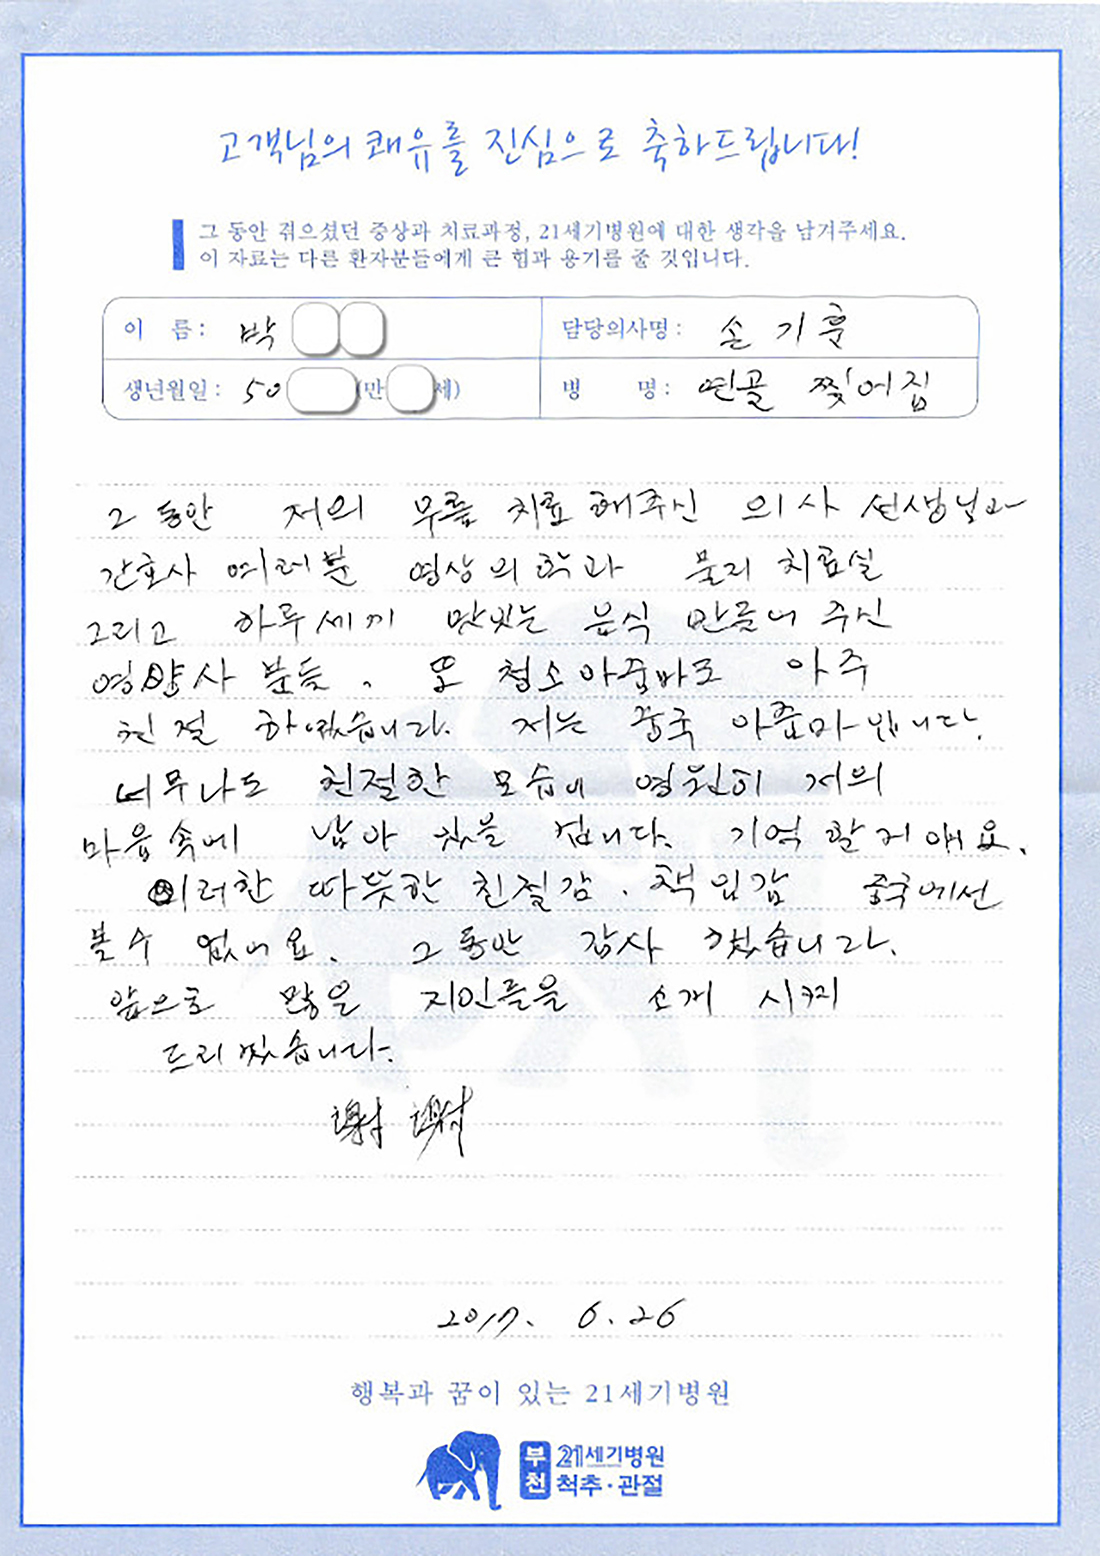 고객님의 쾌유를 진심으로 축하드립니다!
그 동안 겪으셨던 증상과 치료과정, 21세기병원에 대한 생각을 남겨주세요.
이 자료는 다른 환자분들에게 큰 힘과 용기를 줄 것입니다.
이 름 : 박
담당의사명 : 손기훈
생년월일 : 50 (만 세)
병 명 : 연골 찢어짐
그 동안 저의 무릎 치료해주신 의사 선생님과
간호사 여러분 영상의학과 물리 치료실
그리고 하루세끼 맛있는 음식 만들어 주신
영양사 분들. 또 청소아줌마도 아주
친절 하였습니다. 저는 중국 아줌마입니다.
너무나도 친절한 모습에 영원히 저의
마음속에 남아 있을 겁니다. 기억할거애요.
이러한 따뜻한 친절감. 책임감 중국에선
볼수 없어요. 그동안 감사 했습니다.
앞으로 많은 지인들을 소개 시켜
드리겠습니다.
謝謝
2017. 6. 26
행복과 꿈이 있는 21세기병원
부천 21세기병원
척추·관절